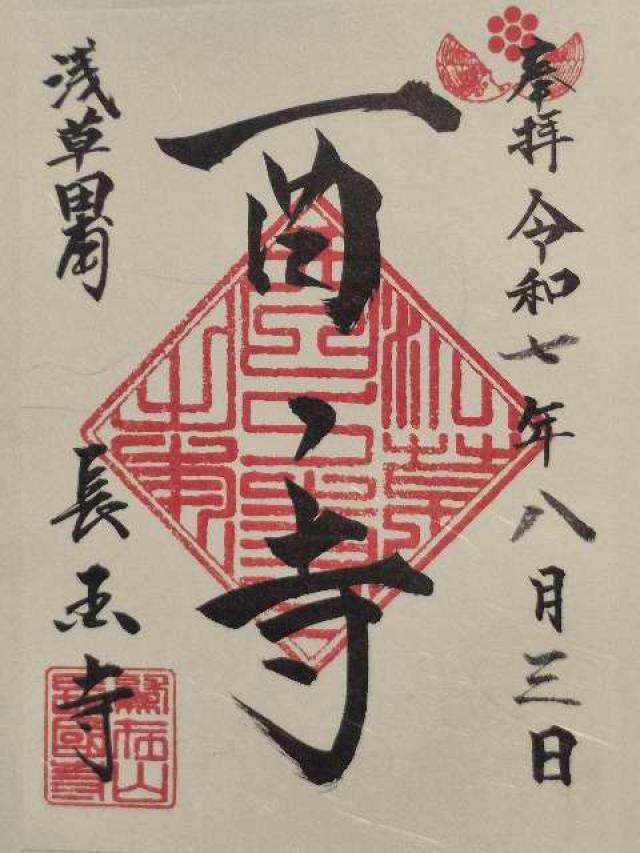 奉拝 令和七年八月三日
酉之寺
浅草田甫
長国寺
鷲在山
長國寺